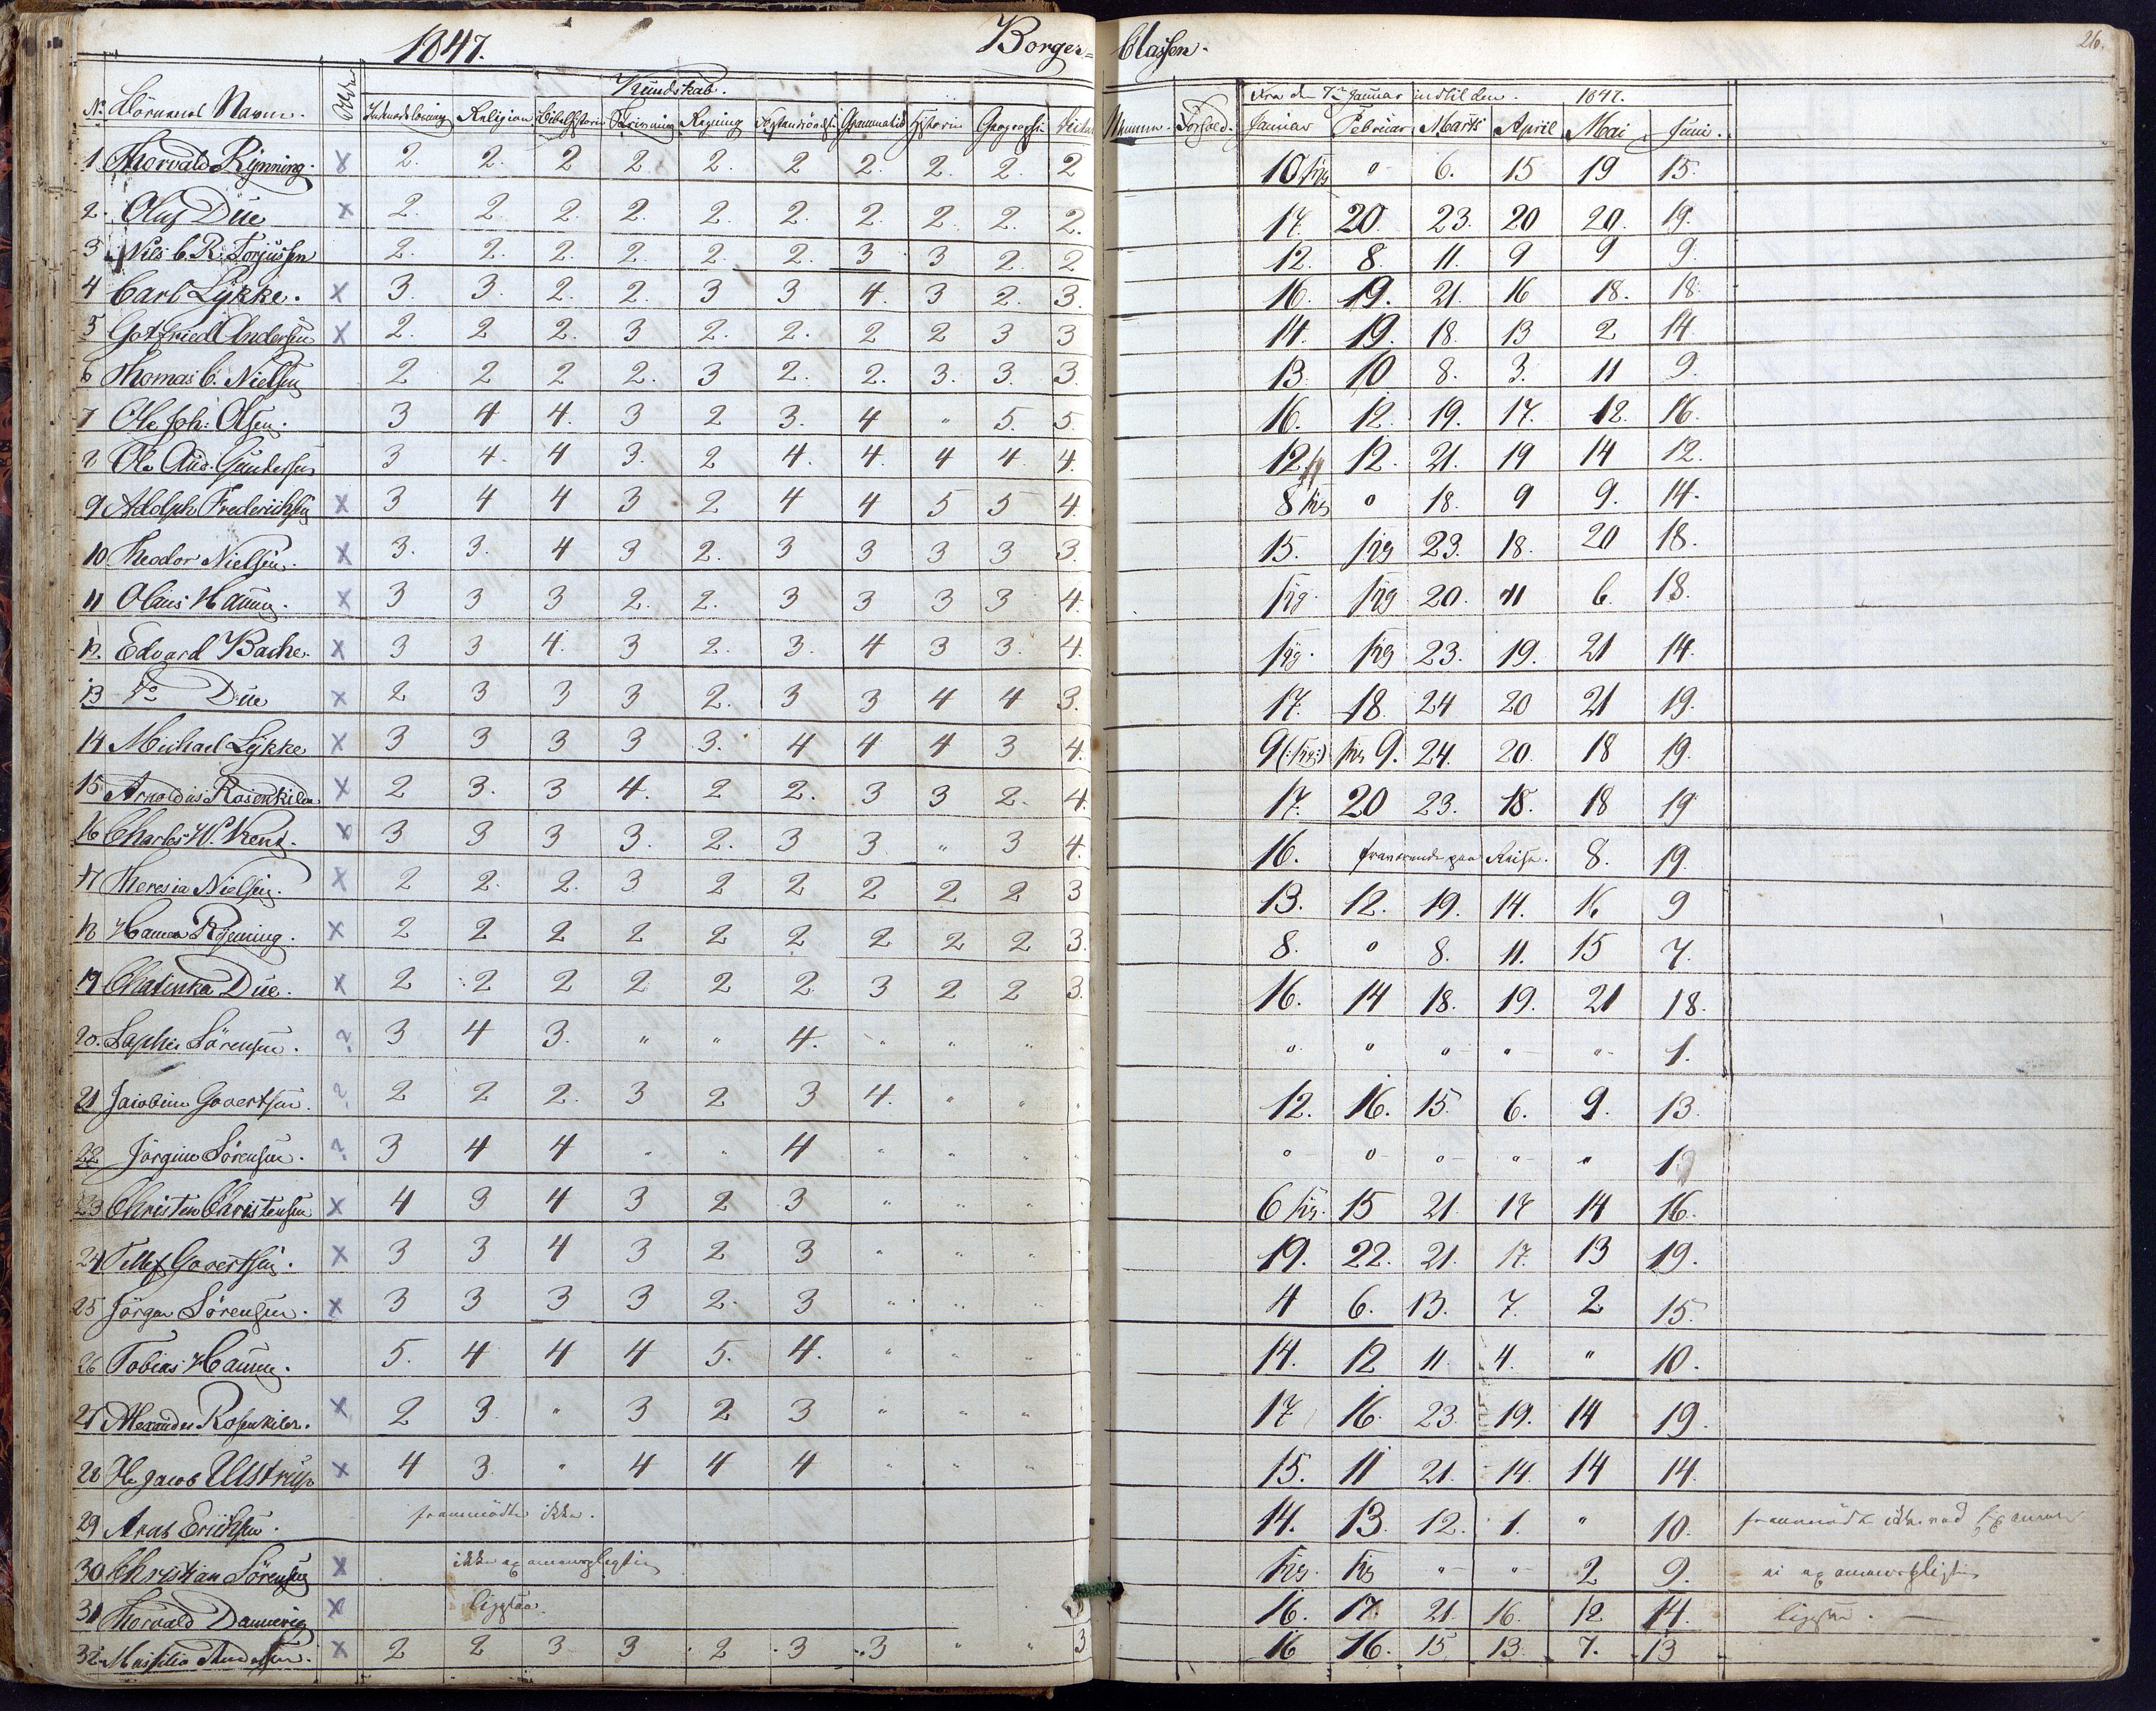 1847. Borger= Classen. 26.
Kundskab. Fra den 7de Januar indtil den 1847.
No Börnenes Navn. Religion Skrivning Regning Grammatik Historie Geographi Forhold. Januar Februar Marts April Mai Juni.
1 Thorvald Rynning. x 2. 2. 2 2. 2. 2 2. 2. 2. 2 10 syg o 6. 15 19 15.
2. Oluf Düe x 2. 2. 2. 2. 2. 2. 2. 2. 2. 2. 17. 20. 23. 20 20. 19.
3 Nils C. R. Torjussen 2. 2. 2. 2. 2. 2. 3 3 2. 2 12. 8. 11. 9 9 9.
4 Carl Lykke. x 3. 3. 2. 2. 3 3 4. 3 2. 3. 16. 19. 21. 16 18. 18.
5 Gotfried Andersen x 2. 2 2. 3 2. 2. 2 2 3 3 14. 19. 18. 13 2 14
6 Thomas C. Nielsen 2 2 2 2. 3 2. 2. 3. 3. 3. 13. 10 8. 3. 11 9.
7 Ole Joh: Olsen. 3 4 4. 3 2 3. 4 " 5. 5. 16. 12. 19. 17. 12. 16.
8 Ole Aug. Gundersen 3 4. 4 3. 2 4. 4. 4 4. 4. 12. 12. 21. 19 14 12.
9 Adolph Frederichsen x 3 4 4 3 2 4 4 5 5 4. 8 syg o 18. 9 9. 14.
10 Theodor Nielsen. x 3. 3. 4 3 2. 3 3 3 3 3. 15. syg 23. 18. 20 18.
11 Olaus Hansen. x 3 3 3 2. 2. 3 3 3 3 4. syg. syg 20. 11 6. 18.
12. Edvard Bache. x 3 3 4. 3 2. 3. 4 3 3. 4. syg. syg 23. 19. 21 14.
13 Do Düe x 2 3 3 3 2. 3 3 4 4 3. 17. 18. 24 20 21 19.
14 Michael Lykke x 3 3 3 3 3. 4 4 4 3 4. 9 (:syg:) syg 9. 24. 20. 18 19.
15 Arnoldus Rosenkilde x 2 3. 3 4. 2 2. 3 3 2. 4. 17. 20 23. 18. 18 19
16 Charles W. Kent. x 3 3 3 3. 2. 3 3 " 3 4. 16. fraværende paa Reise. 8. 19.
17 Theresia Nielsen. x 2 2. 2. 3 2 2 2 2 2 3 13. 12. 19. 14. 16 9
18 Hanna Rynning. x 2 2 2 2 2 2 2 2 2 3. 8. o 8. 11. 15 7.
19 Chatinka Düe. x 2 2 2 2 2 2 3 2 2 3. 16. 14 18. 19. 21 18.
20. Sophie Sörensen. ? 3 4 3. " " 4. " " " o o o o " 1.
21 Jacobine Govertsen. ? 2 2 2. 3 2 3 4. " " 12. 16. 15. 6. 9. 13.
22 Jörgine Sörensen. ? 3 4 4 " " 4 " " " o o o o " 1
23 Christen Christensen x 4 3 4 3 2 3 " " " 6 syg. 15 21. 17 14 16.
24 Tellef Govertsen. x 3 3 4 3 2 3 " " " 19. 22. 21. 17. 13 19.
25 Jörgen Sörensen. x 3 3 3 3 2. 3 " " " 4 6. 13. 7. 2 15.
26 Tobias Hansen. 5. 4 4 4 5. 4. " " " 14. 12 11. 4. " 10.
27 Alexander Rosenkilde. x 2 3. " 3 2 3 " " " 17 16. 23. 19. 14 19.
28 H. Jacob Ulstrup x 4 3. " 4 4 4 " " " 15. 11 21. 14. 14 14.
29 Erichsen. fremmödte ikke. 14. 13. 12. 1. " 10. fremmödte ikke ved Examen
30 Christian Sörensen x ikke examenspligtig syg. syg " " 2 9. ei examenspligtig
31 Thorvald Dannevig x ligesaa. 16. 17. 21. 16. 12 14. ligesaa.
32 Andersen. x 2 2 3 3 2 3 3 " " 3 16 16. 15 13. 7. 13